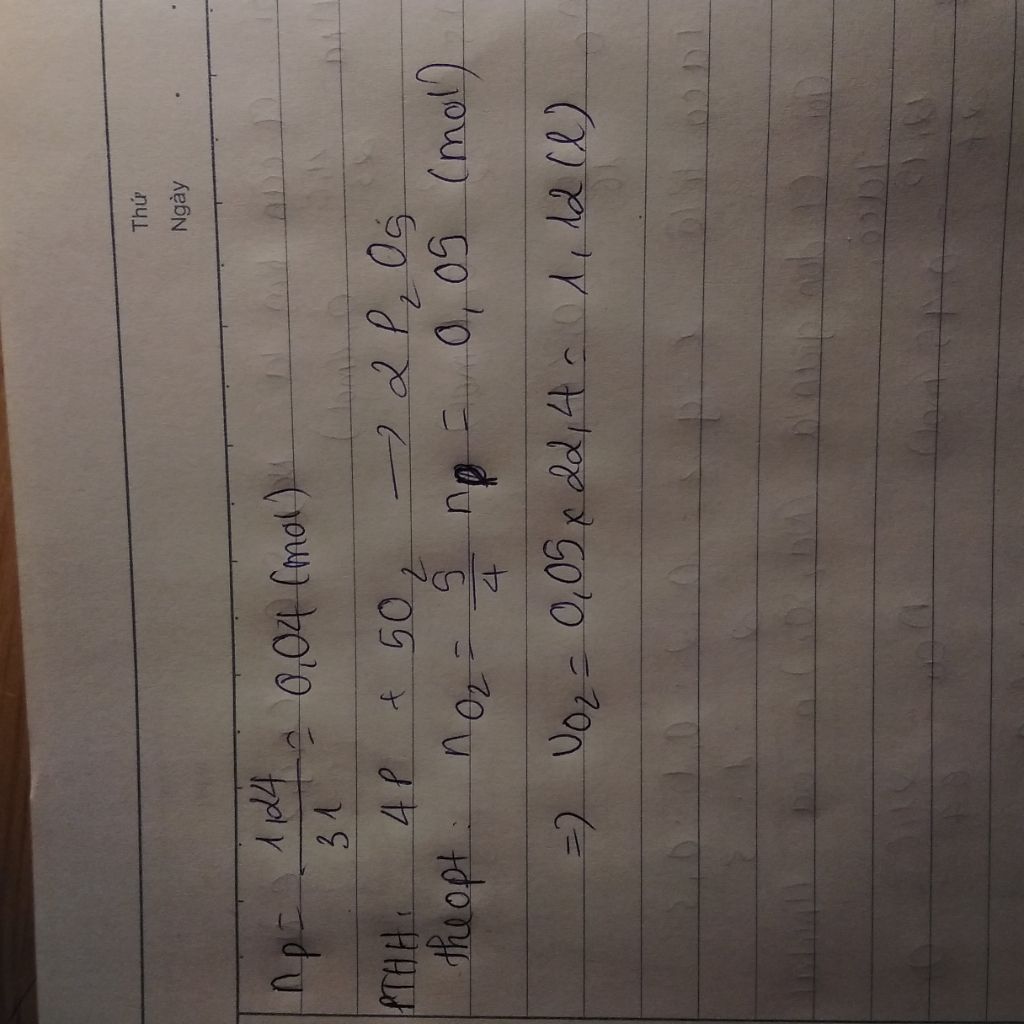 Thứ
Ngày
nP = 1,24/31 = 0,04 (mol)
PTHH: 4P + 5O2 → 2P2O5
theo pt: nO2 = 5/4 nP = 0,05 (mol)
=) VO2 = 0,05 x 22,4 = 1,12 (l)